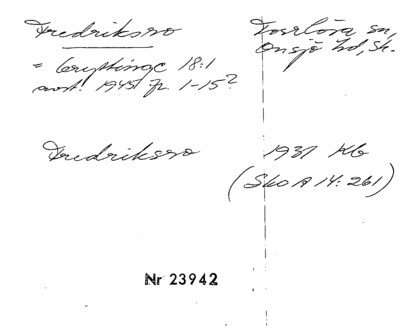 Fredriksro
Torrlösa sn,
Onsjö hd, Sk.
= Gryttinge 18:1
avst. 1945 fr. 1-15?
Fredriksro
1931 Kb
(Sko A 14: 261)
Nr 23942